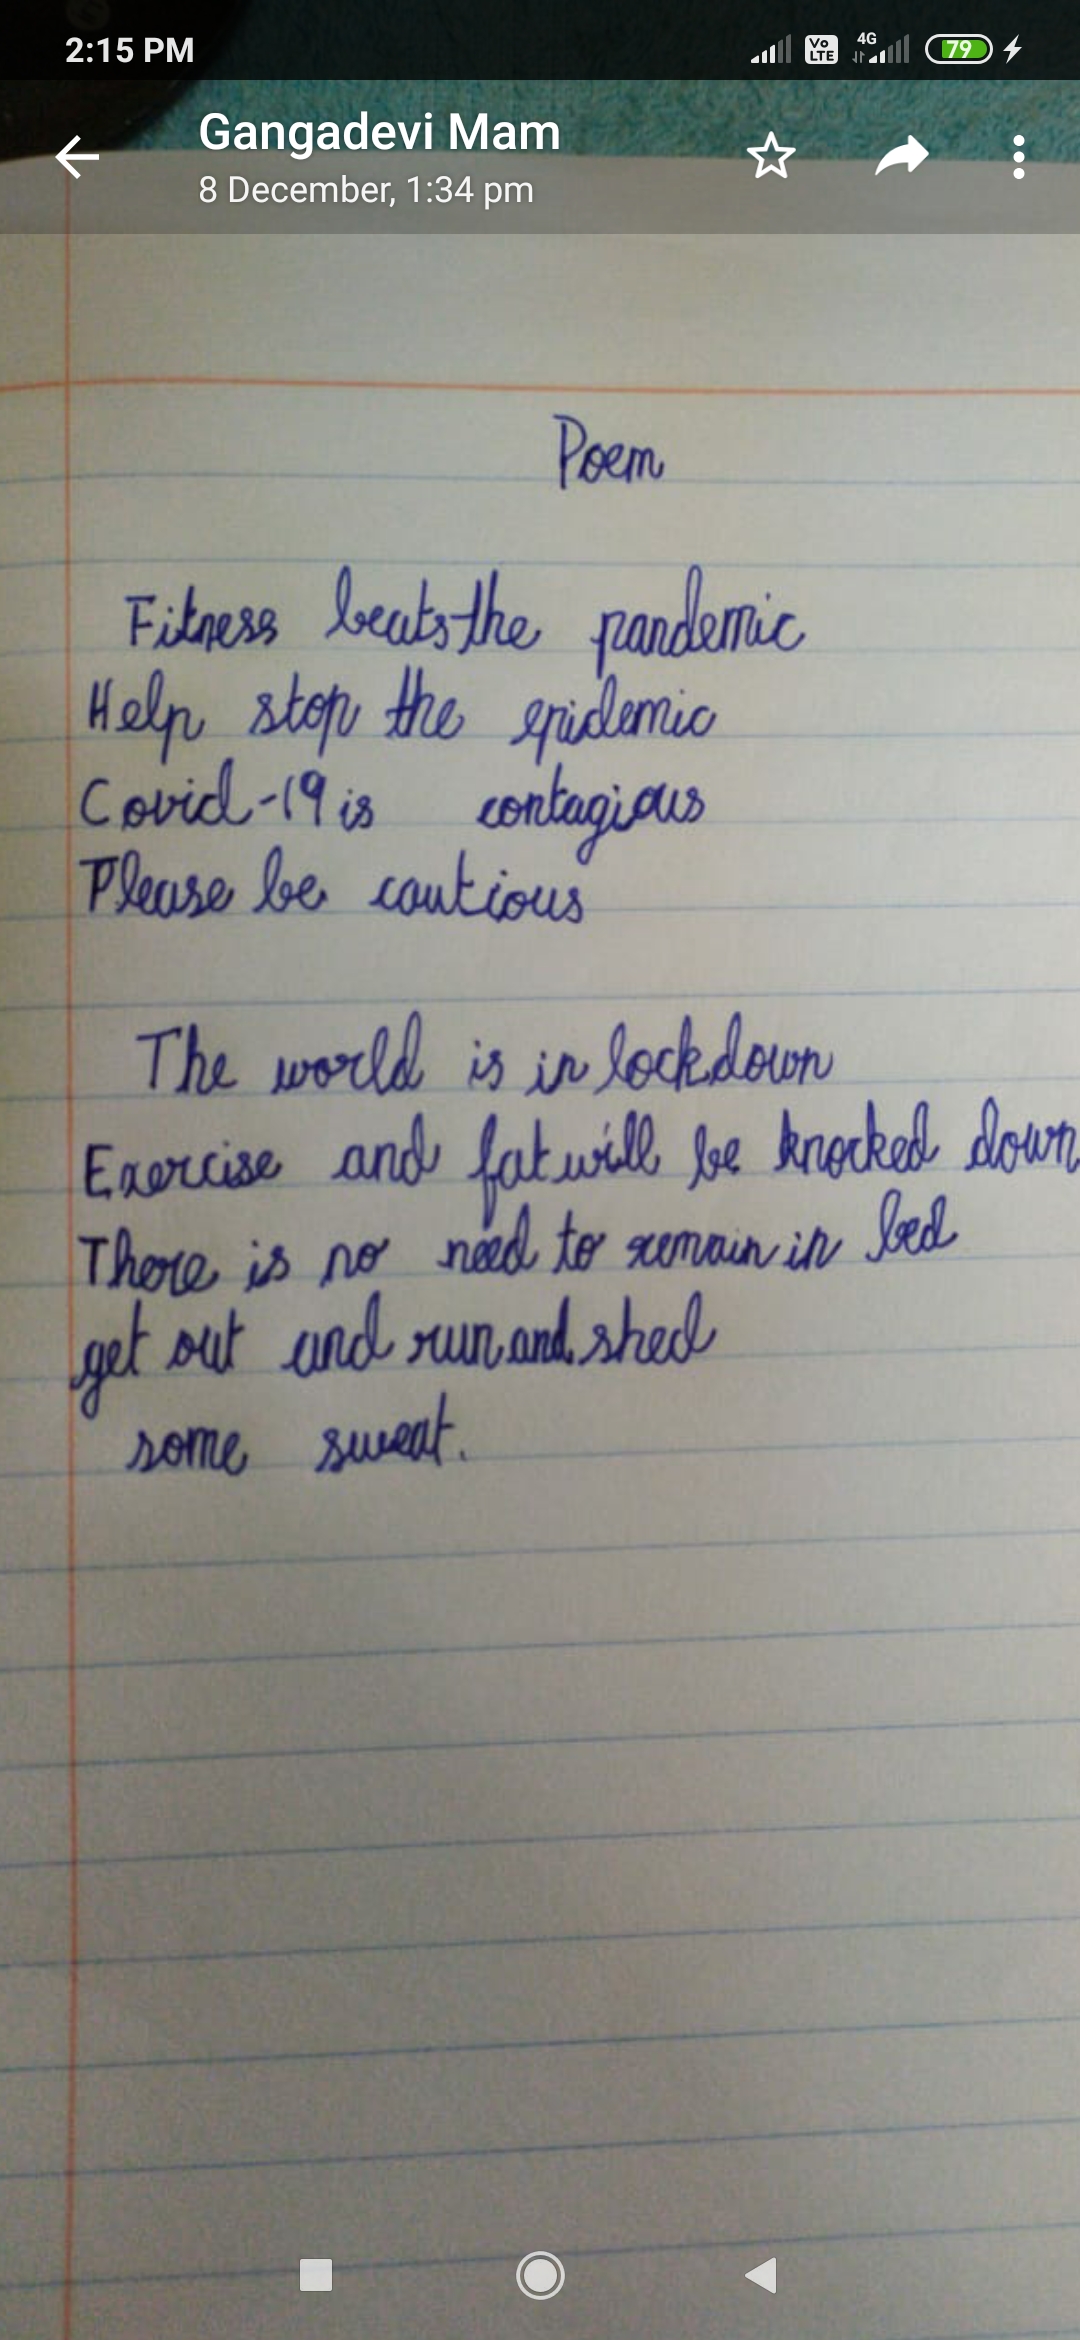 2:15 PM
Vo LTE
4G
79
Gangadevi Mam
8 December, 1:34 pm
Poem
Fitness beats the pandemic
Help stop the epidemic
Covid-19 is contagious
Please be cautious
The world is in lockdown
Exercise and fat will be knocked down
There is no need to remain in bed
get out and run and shed
some sweat.